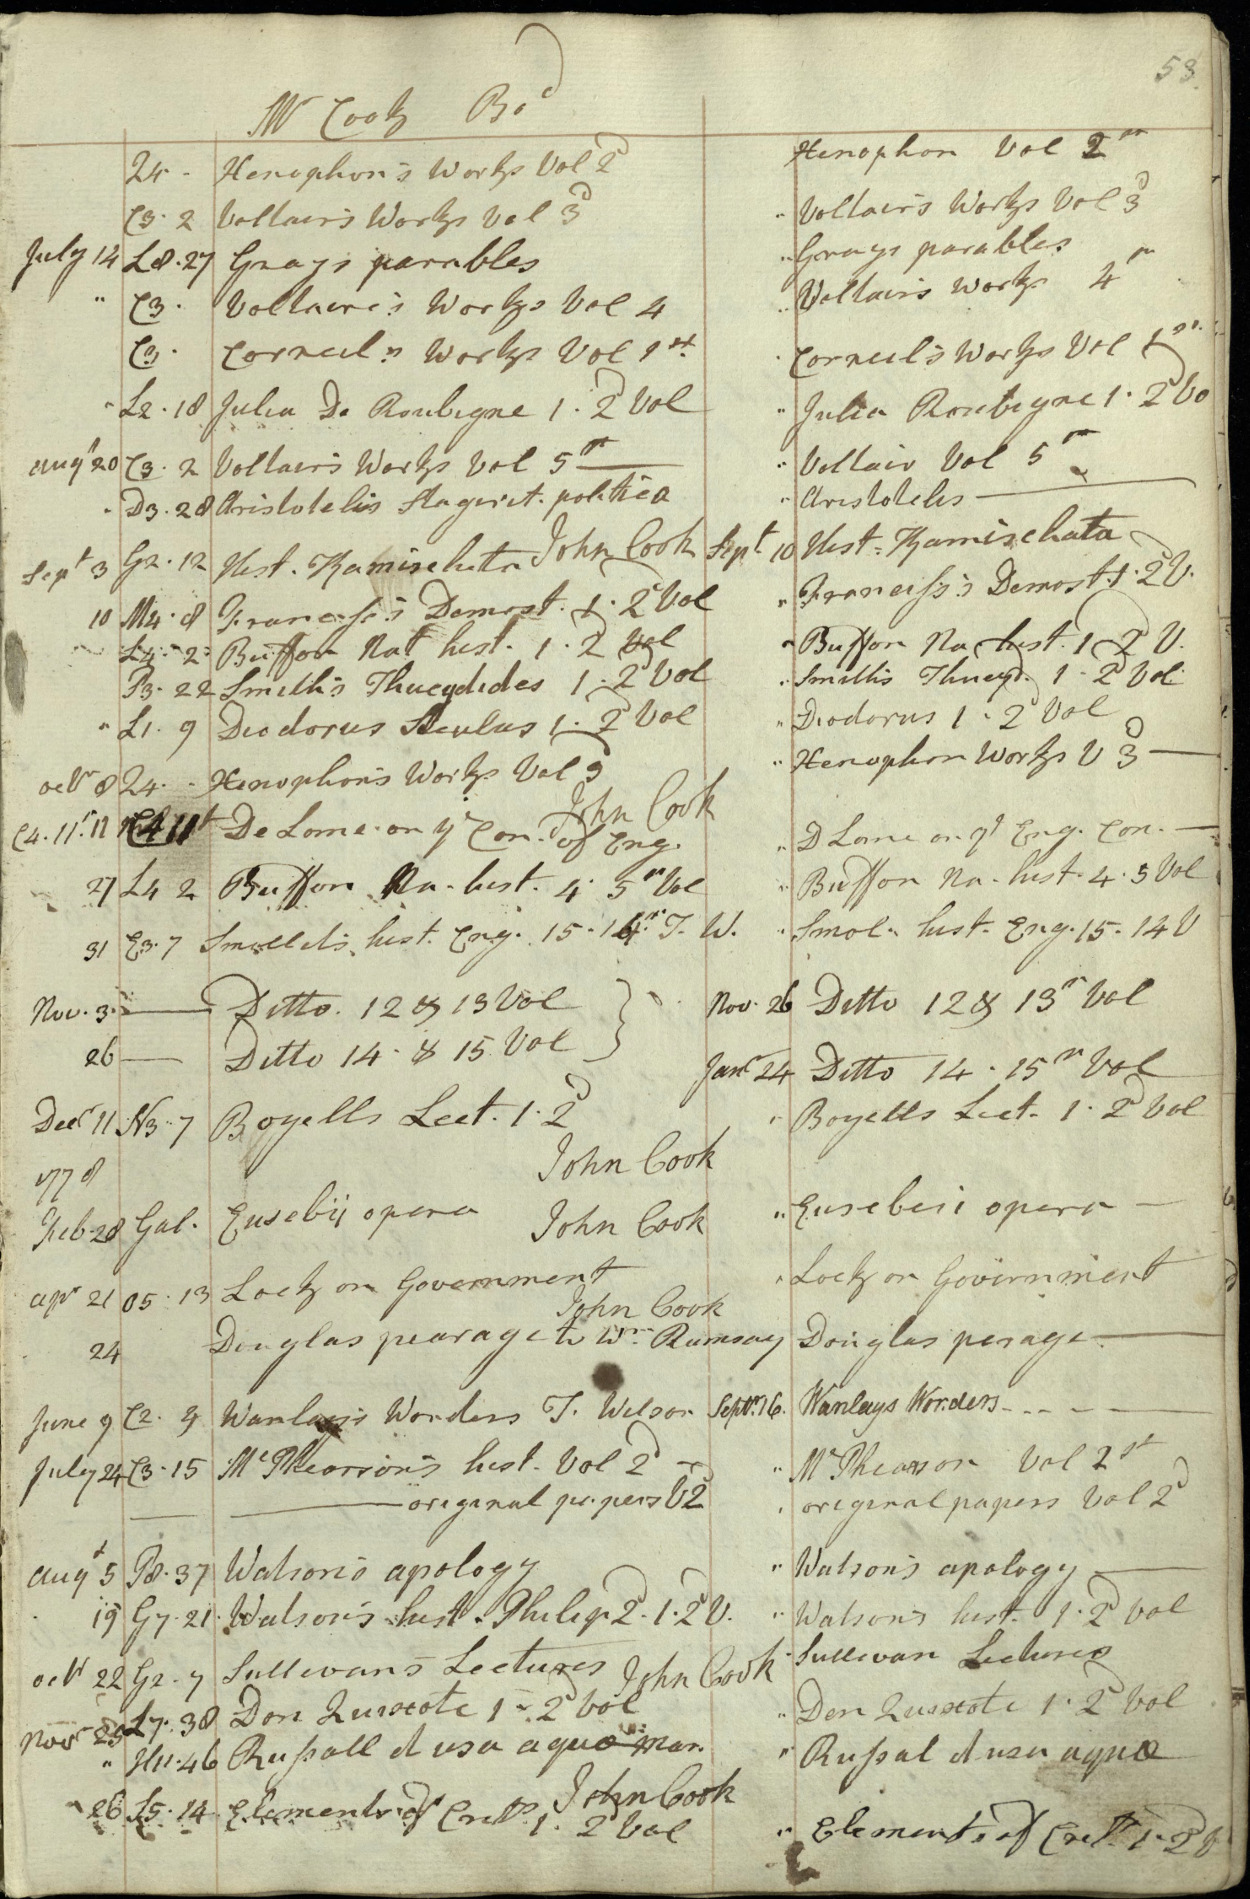 53.
Mr Cook Bod
24 - Xenophon's Works Vol 2d Xenophon Vol 2m
C3. 2 Voltair's Works Vol 3d " Voltair's Works Vol 3d
July 14 L8.27 Gray's parables " Grays parables
" C3. Voltaire's Works Vol 4 " Voltairs works 4m
C3. Corneil's Works Vol 1st Corneil's Works Vol 1st
" L2.18 Julia De Roubigne 1.2d Vol " Julia Roubigne 1.2d Vo
augt 20 C3. 2 Voltair's Works Vol 5m " Voltair Vol 5m
" D3.28 Aristotelis Stagirit. politica " Aristotelis
Sept 3 G2.12 Hist. Kamischata John Cook Sept 10 Hist. Kamischata
10 M4.8 Francis's Demost. 1.2d Vol " Franciss's Demost. 1.2d V.
L4.2. Buffon Nat hist. 1.2 Vol " Buffon Na hist. 1.2d V.
P3.22 Smith's Thucydides 1.2d Vol " Smith's Thucyd. 1.2d Vol
" L1.9 Diodorus Siculus 1.2d Vol " Diodorus 1.2d Vol
octr 8 24. - Xenophon's Works Vol 3 " Xenophon Works V 3d
John Cook
C4.11. 11 De Lome on ye Con. of Eng. " D Lome on ye Eng. Con.
27 L4 2 Buffon Na. hist. 4. 5m Vol " Buffon Na. hist. 4.5 Vol
31 E3.7 Smollet's hist. Eng. 15.14m T. W. " Smol. hist. Eng. 15.14 V
Nov. 3. Ditto. 12 & 13 Vol Nov. 26 Ditto 12 & 13m Vol
26 Ditto 14. & 15 Vol Janr 24 Ditto 14.15m Vol
Decr 11 N3.7 Boyells Lect. 1.2d " Boyells Lect. 1.2d Vol
John Cook
1778
Feb. 28 Gal. Eusebii opera John Cook " Eusebeii opera
apr 21 O5.13 Lock on Government " Lock on Government
John Cook
24 Douglas pearage to Wm Ramsay Douglas perage
June 9 C2. 4 Wanlay's Wonders T. Wilson Septr. 16. Wanlays Wonders
July 24 C3.15 McPhearson's hist. Vol 2d " McPhearson Vol 2d
original papers V2 " original papers Vol 2d
augt 5 P8.37 Watson's apology " Watson's apology
19 G7.21. Watson's hist. Philip 2d. 1.2d V. " Watson's hist. 1.2d Vol
octr 22 G2.7 Sullivan's Lectures John Cook " Sullivan Lectures
Novr 25 L7.38 Don Quixote 1 - 2d Vol " Don Quixote 1.2d Vol
" H11.46 Russall d usu aquæ mar. " Russal d usu aquæ
John Cook
26 L5.14 Elements of Critm. 1. 2d Vol " Elements of Critm. 1.2d V